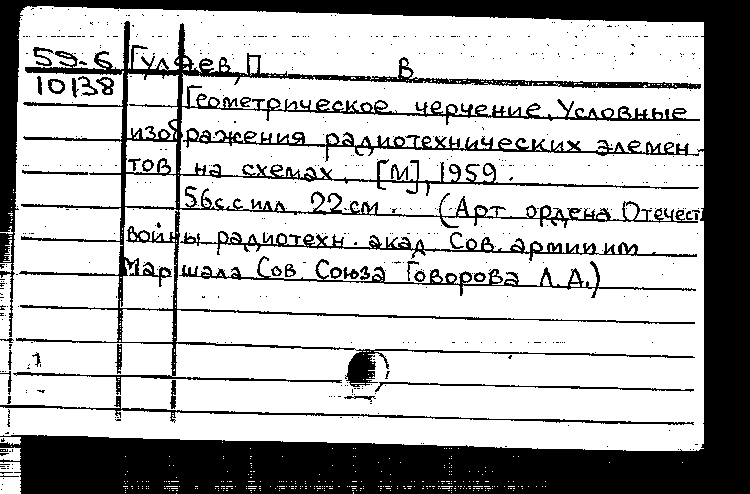 59-6 Гуляев, П В
10138 Геометрическое черчение. Условные
изображения радиотехнических элемен-
тов на схемах. [М], 1959.
56с. с илл. 22 см. (Арт. ордена Отечест
войны радиотехн. акад. Сов. армии им.
Маршала Сов. Союза Говорова Л.А.)